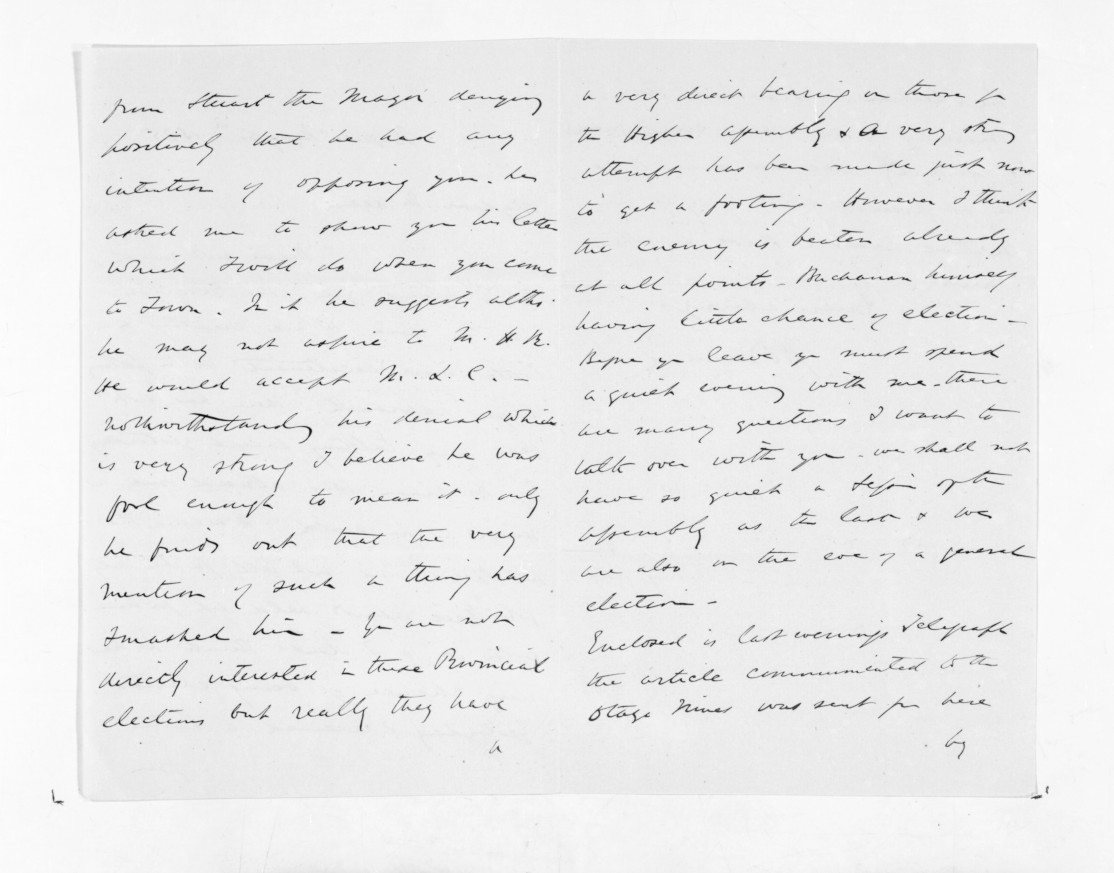 from Stuart the Mayor denying
positively that he had any
intention of opposing you. he
asked me to show you his letter
which I will do when you come
to Town. In it he suggests altho'
he may not aspire to M.H.R.
He would accept M.L.C. —
notwithstanding his denial which
is very strong I believe he was
fool enough to mean it. only
he finds out that the very
mention of such a thing has
smashed him — You are not
directly interested in these Provincial
elections but really they have
a
a very direct bearing on those for
the Higher Assembly & a very strong
attempt has been made just now
to get a footing. However I think
the enemy is beaten already
at all points — Buchanan himself
having little chance of election —
Before you leave you must spend
a quiet evening with me — there
are many questions I want to
talk over with you. we shall not
have so quiet a session of the
Assembly as the last & we
are also on the eve of a general
election —
Enclosed is last evenings Telegraph
the article communicated to the
Otago Times was sent from here
by